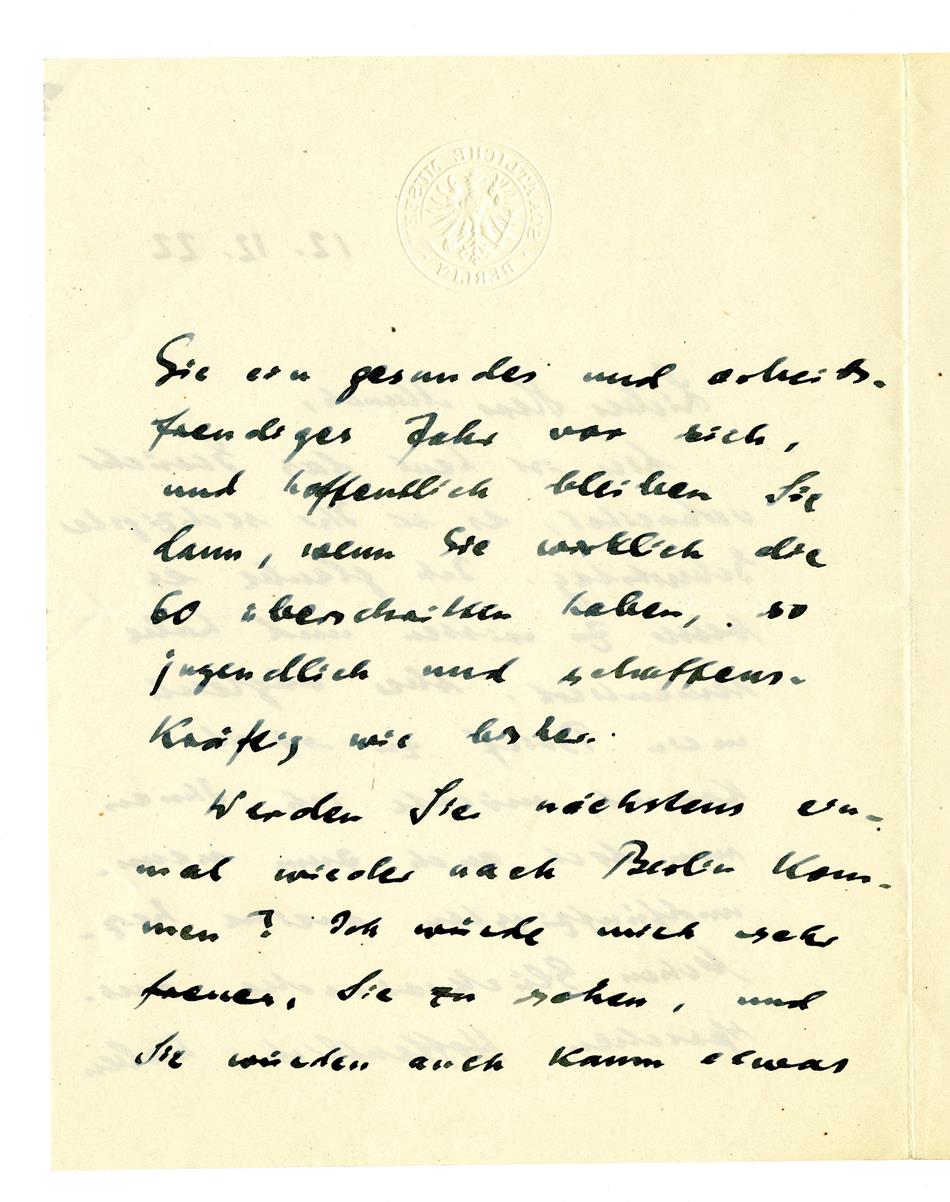 STAATLICHE MUSEEN
BERLIN
12. 12. 22
Sie ein gesundes und arbeits-
freudiges Jahr vor sich,
und hoffentlich bleiben Sie
dann, wenn Sie wirklich die
60 überschritten haben, so
jugendlich und schaffens-
kräftig wie bisher.
Werden Sie nächstens ein-
mal wieder nach Berlin kom-
men? Ich würde mich sehr
freuen, Sie zu sehen, und
Sie würden auch kaum etwas